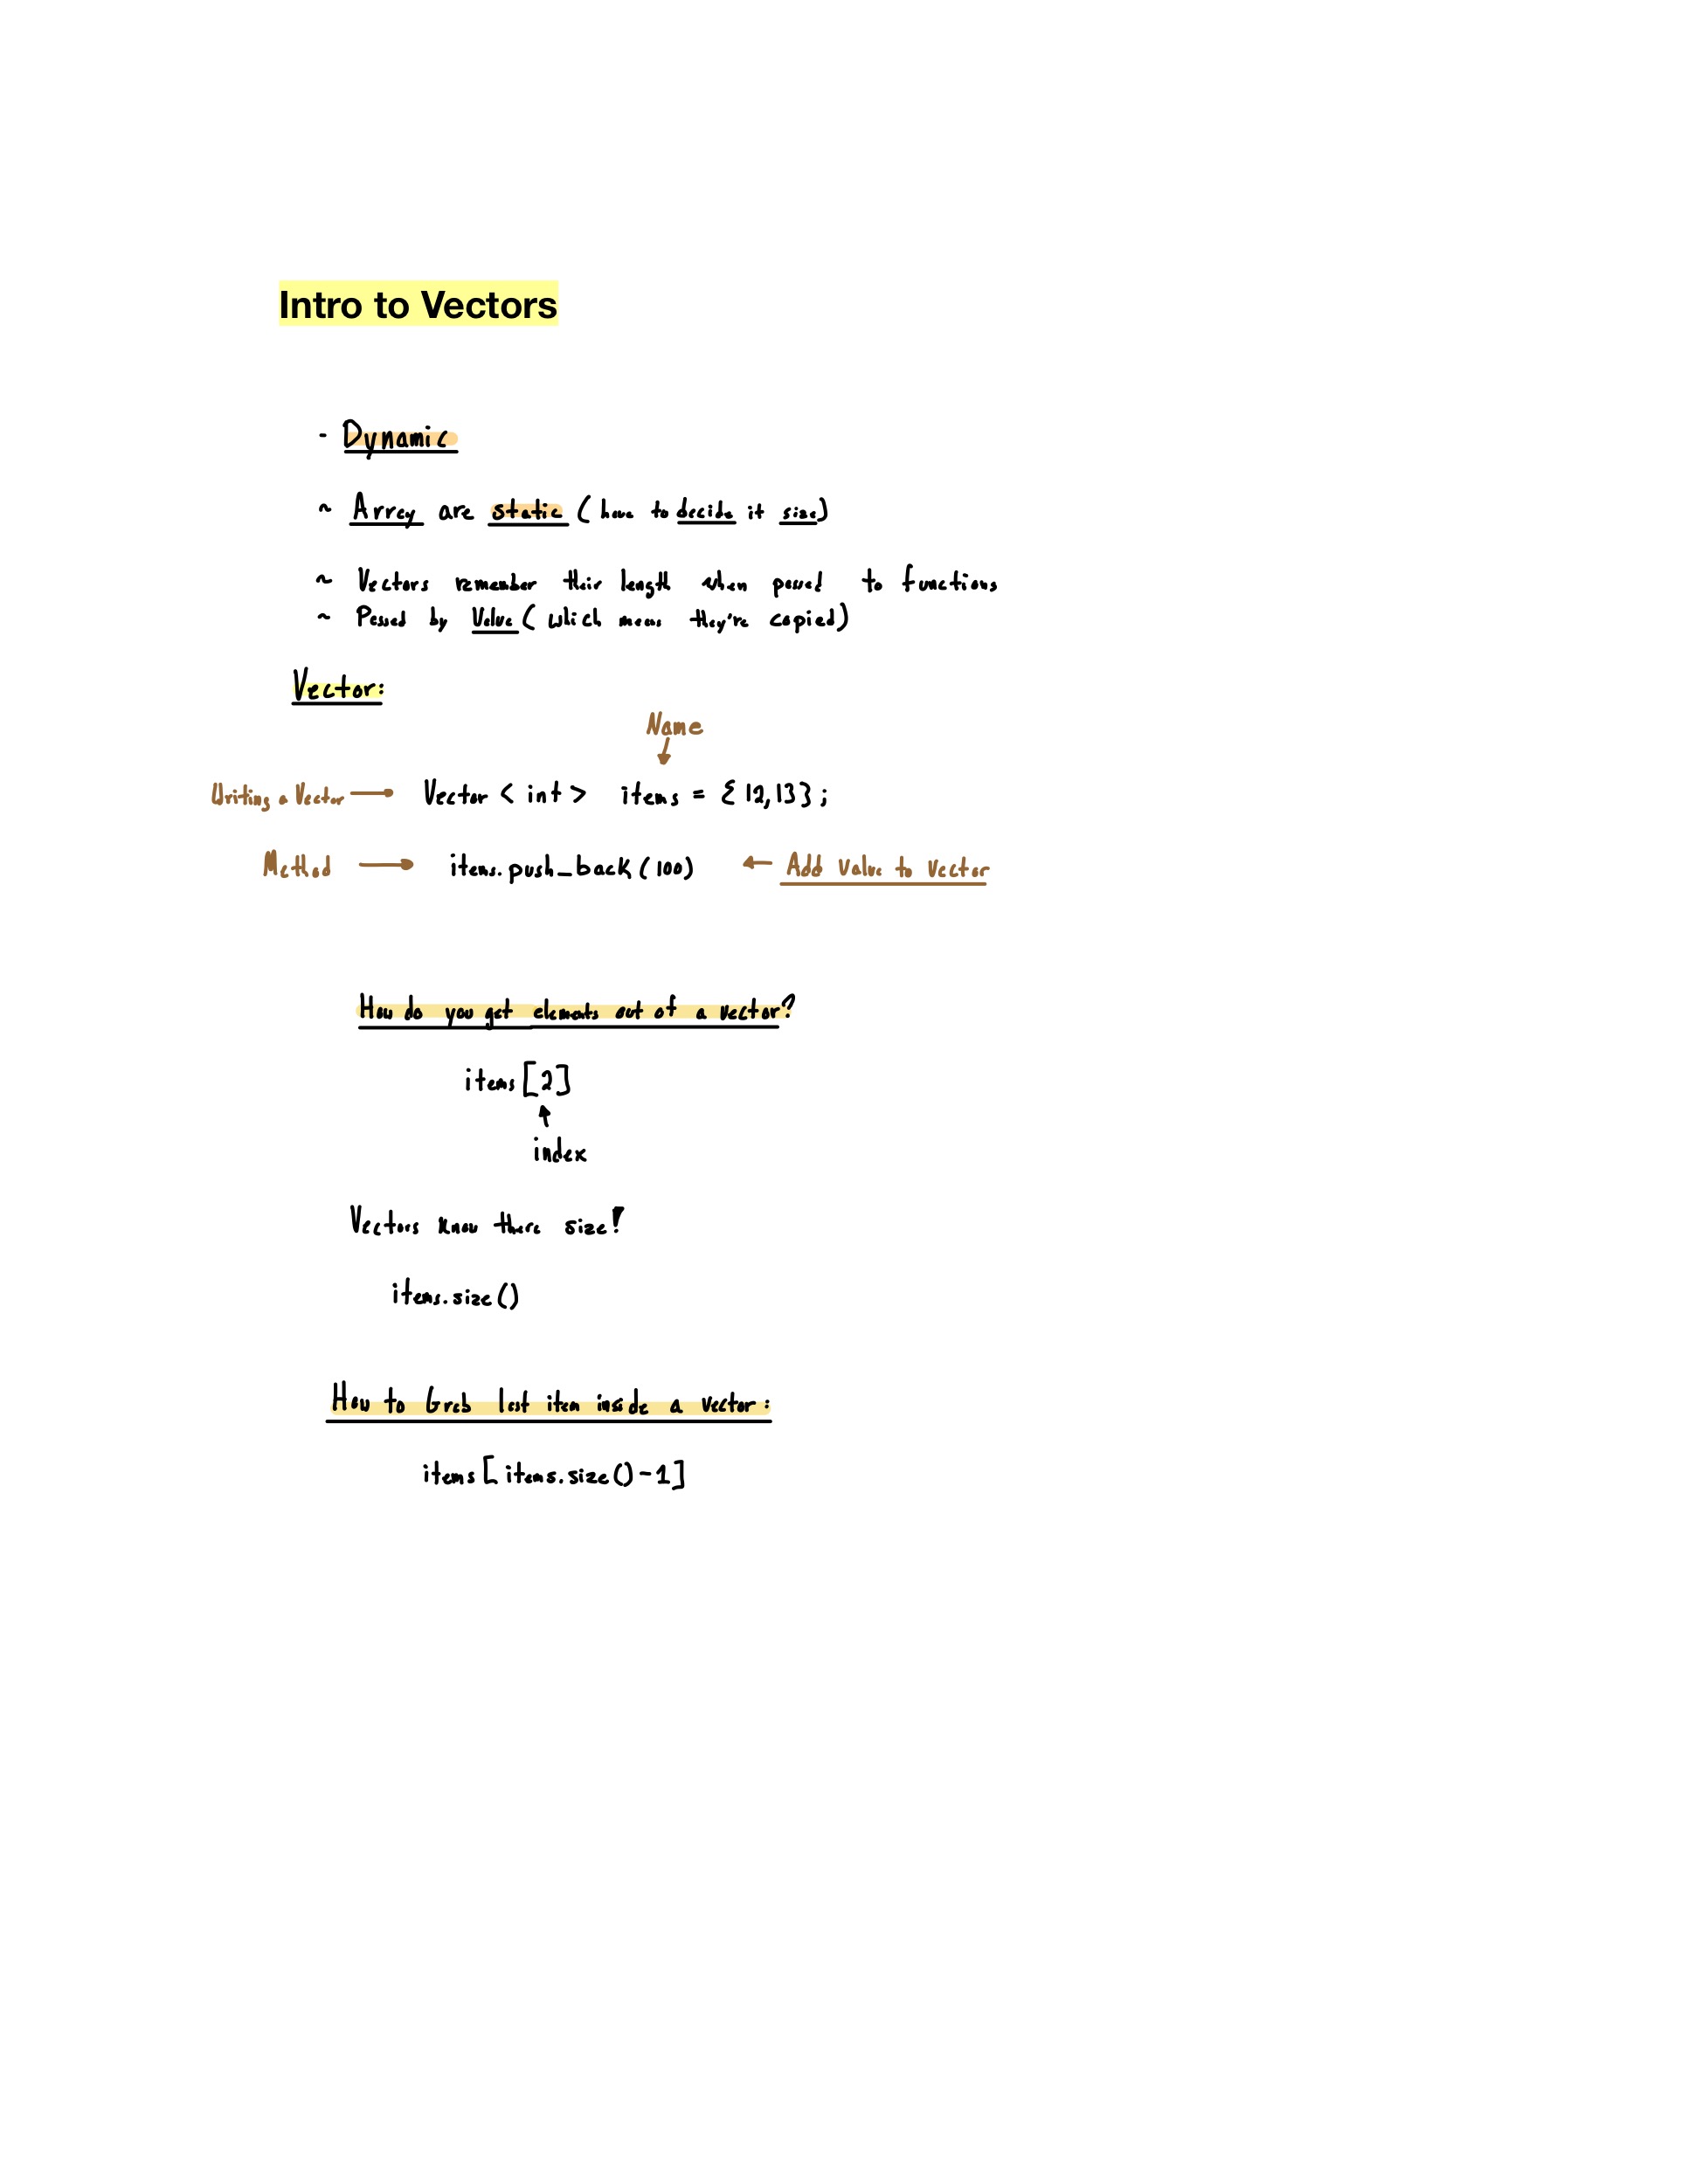 Intro to Vectors
- Dynamic
~ Array are static (have to decide it size)
~ Vectors remember their length when passed to functions
~ Passed by Value (which means they're copied)
Vector:
Name
Writing a Vector → Vector < int > items = {12,13};
Method → items.push_back (100) ← Add value to vector
How do you get elements out of a vector?
items [2]
index
Vectors know there size!
items.size()
How to Grab last item inside a vector:
items [items.size()-1]